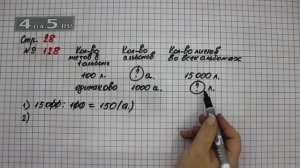 4apok5.ru
Стр. 28
№ 128
Кол-во листов в 1 альбоме
Кол-во альбомов
Кол-во листов во всех альбомах
100 л.
? а.
15 000 л.
одинаково
1000 а.
? л.
1) 15000 : 100 = 150 (а.)
2)